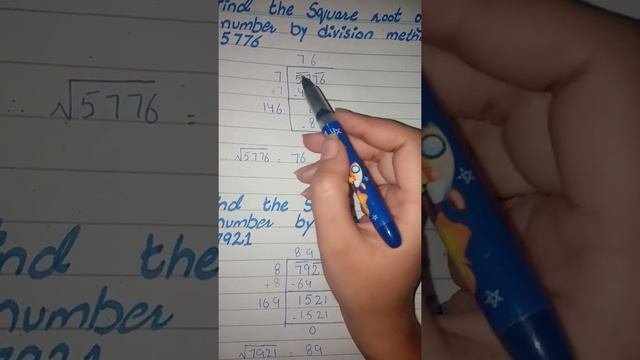 find the Square root
number by division meth
5776
76
7 5776
+7 -4
146
-8
√5776 = 76
nd the S
number by
7921
89
8 792
+8 -64
169 1521
-1521
0
√7921 = 89
∴ √5776
nd the
number
921